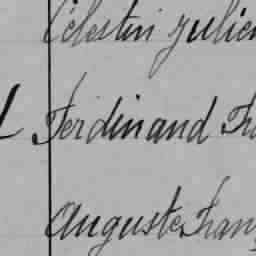 Célestin Julien
Ferdinand Fra
Auguste Fran